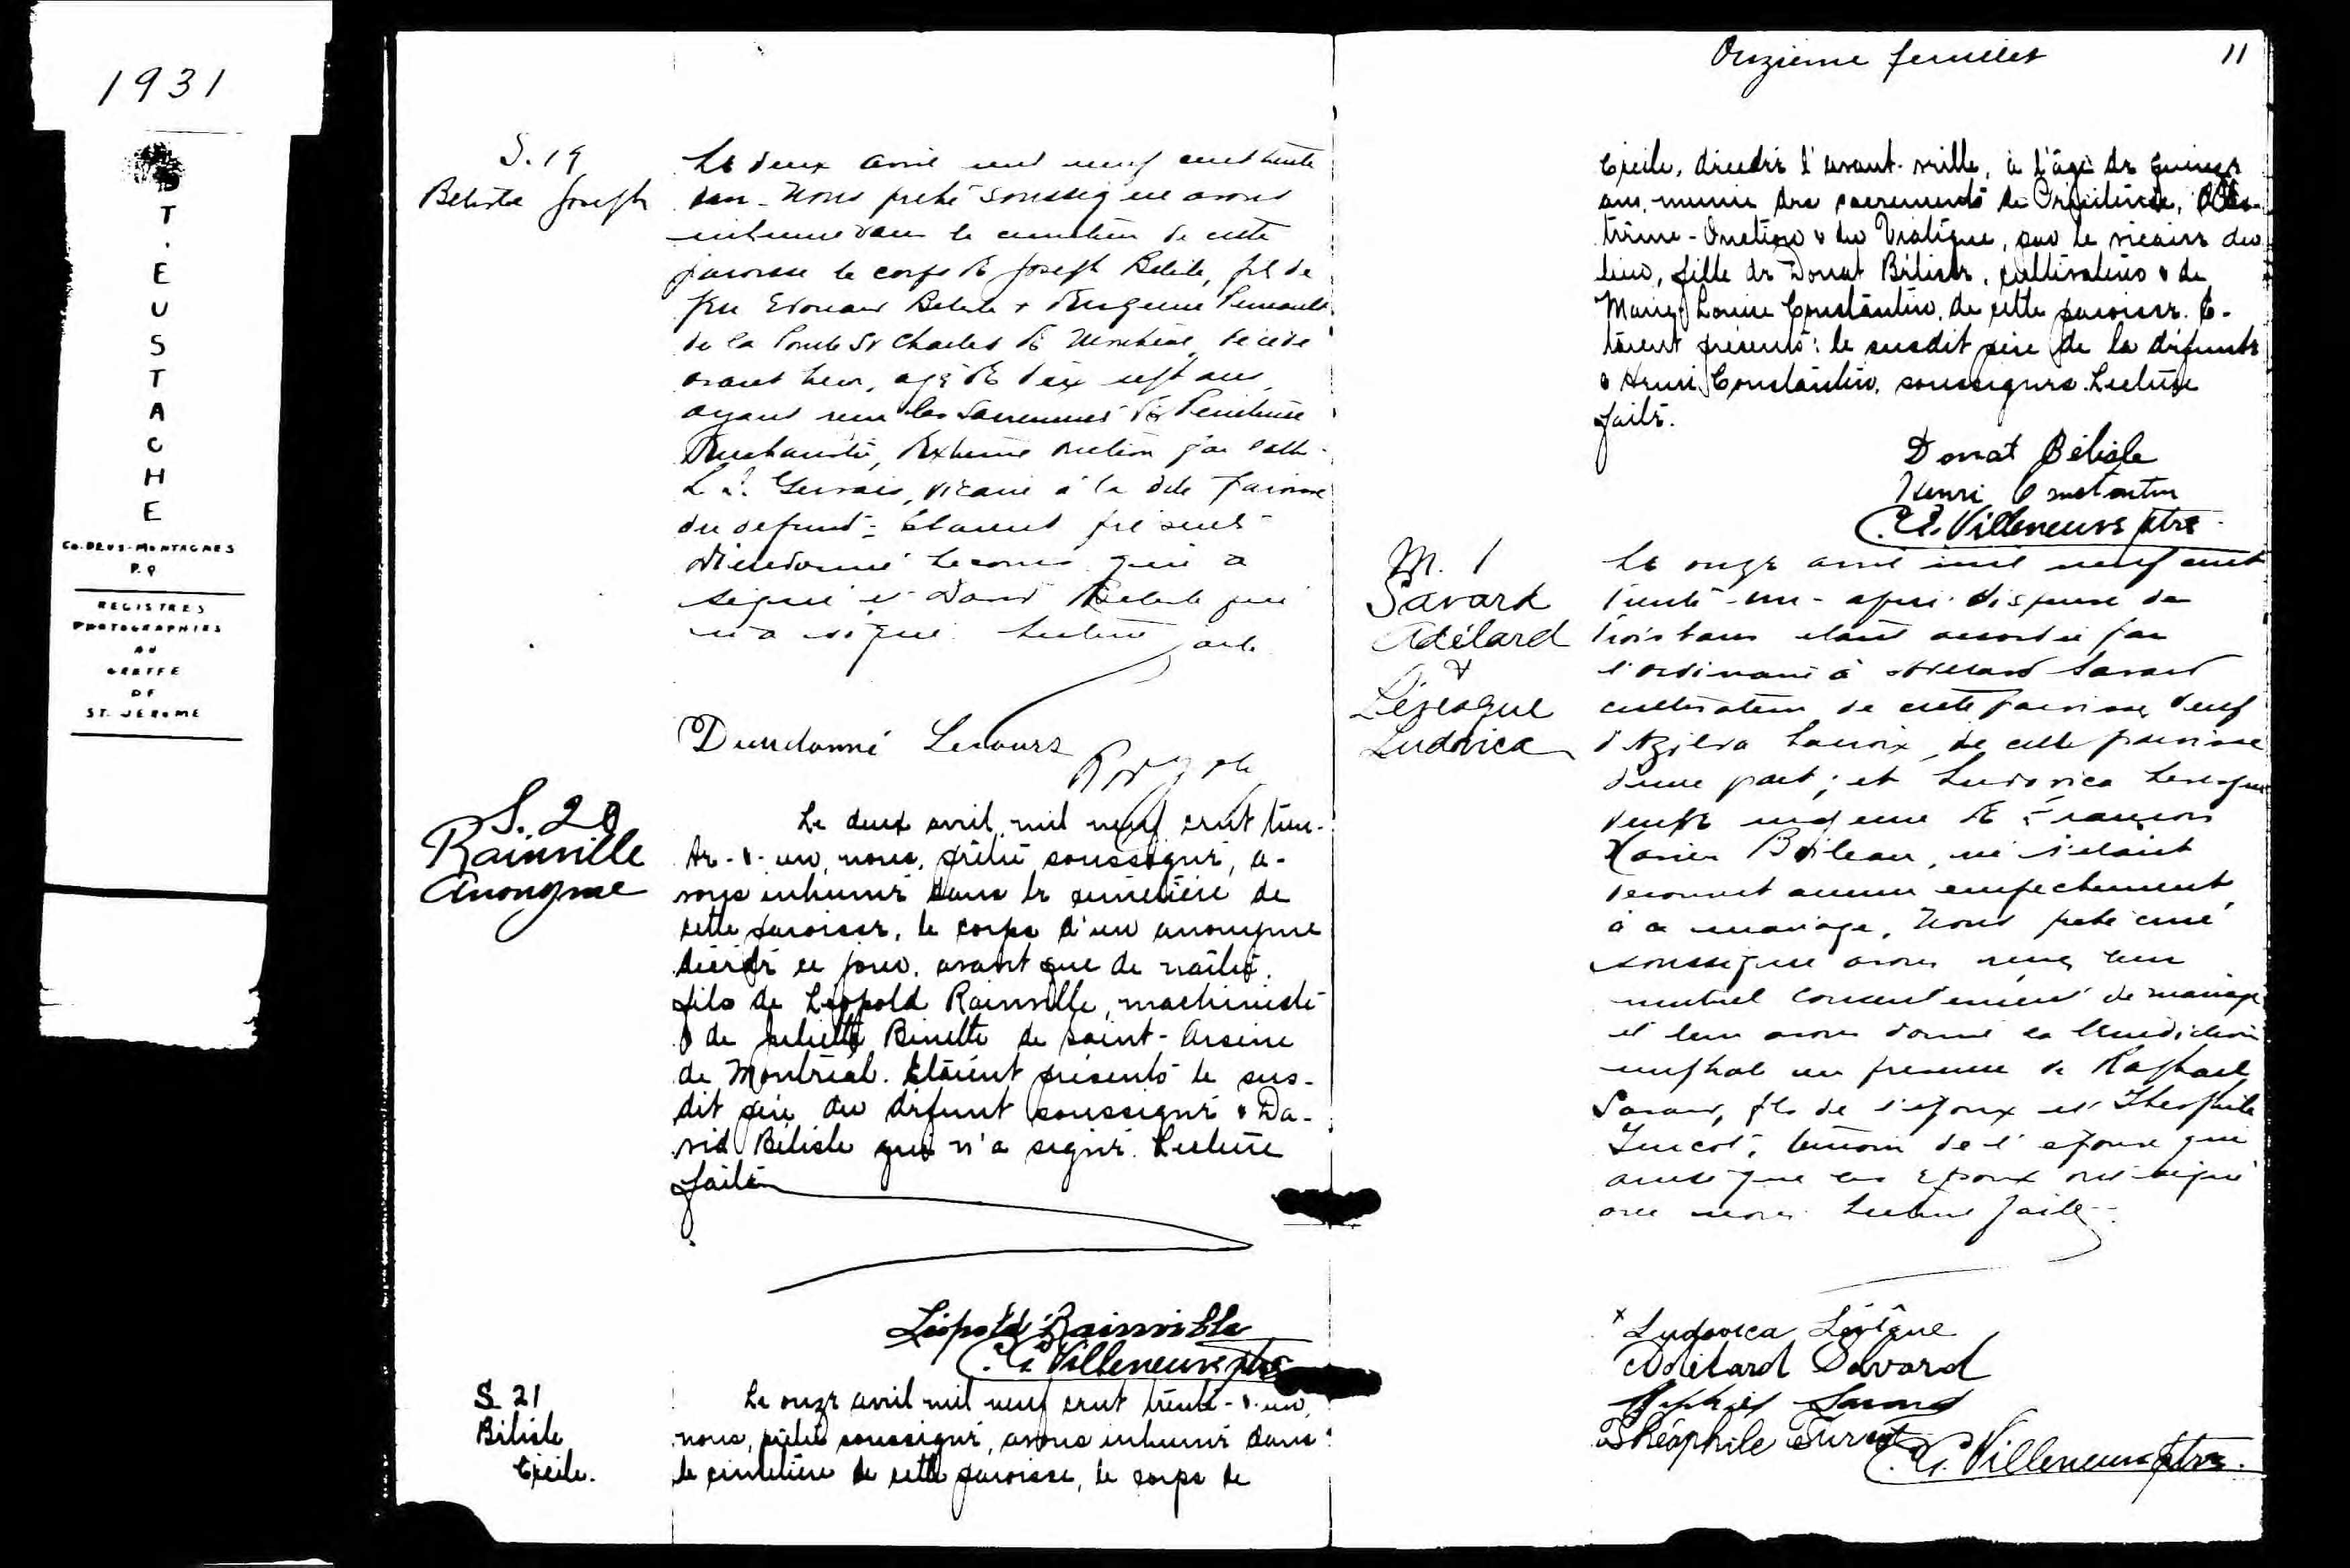 1931
ST. EUSTACHE
CO. DEUX-MONTAGNES
P.Q
REGISTRES
PHOTOGRAPHIES
AU
GREFFE
DE
ST. JEROME
S. 19
Belisle Joseph
Le deux avril mil neuf cent trente
un - Nous prêtre soussigné avons
inhumé dans le cimetière de cette
paroisse le corps de Joseph Belisle, fils de
feu Edouard Belisle + Eugenie
de la Pointe St Charles de Montréal, décédé
avant hier, agé de dix sept ans,
ayant reçu les Sacrements de Penitence
Eucharistie, Extreme onction par l'abbé
Gervais, vicaire à la dite paroisse
du defunt - Etaient présents
Dieudonné Lecours qui a
signé et David Belisle qui
n'a signé. Lecture faite
Dieudonné Lecours
S. 20
Rainville
Anonyme
Le deux avril, mil neuf cent tren-
te - & - un, nous, prêtre soussigné, a-
vons inhumé dans le cimetière de
cette paroisse, le corps d'un anonyme
décédé ce jour, avant que de naître,
fils de Léopold Rainville, machiniste
& de Juliette Binette de saint-Arsène
de Montréal. Etaient présents le sus-
dit père du défunt soussigné & Da-
vid Bélisle qui n'a signé. Lecture
faite
Léopold Rainville
C. E. Villeneuve ptre
S. 21
Bélisle
Cécile.
Le onze avril mil neuf cent trente - & - un,
nous, prêtre soussigné, avons inhumé dans
le cimetière de cette paroisse, le corps de
Onzième feuillet 11
Cécile, décédée l'avant-veille, à l'âge de quinze
ans, munie des sacrements de Pénitence, d'Ex-
trême-Onction & du Viatique, par le vicaire du
lieu, fille de Donat Bélisle, cultivateur & de
Marie Louise Constantin, de cette paroisse. E-
taient présents: le susdit père de la défunte
& Henri Constantin, soussignés. Lecture
faite.
Donat Bélisle
Henri Constantin
C. E. Villeneuve ptre.
M. 1
Savard
Adélard
&
Lévesque
Ludovica
Le onze avril mil neuf cent
trente - un - après dispense de
trois bans étant accordée par
l'ordinaire à Adélard Savard
cultivateur de cette paroisse, veuf
d'Azilda Lacroix, de cette paroisse
d'une part; et Ludovica Levesque
veuve majeure de François
Xavier Boileau, ne s'étant
découvert aucun empechement
à ce mariage, Nous prêtre curé
soussigné avons reçu leur
mutuel consentement de mariage
et leur avons donné la bénédiction
nuptiale en presence de Raphael
Savard, fils de l'époux et Théophile
Turcot, témoin de l'épouse qui
ainsi que les époux ont signé
avec nous. Lecture faite.
x Ludovica Lévêque
Adélard Savard
Savard
Théophile Turcot
C. E. Villeneuve ptre.